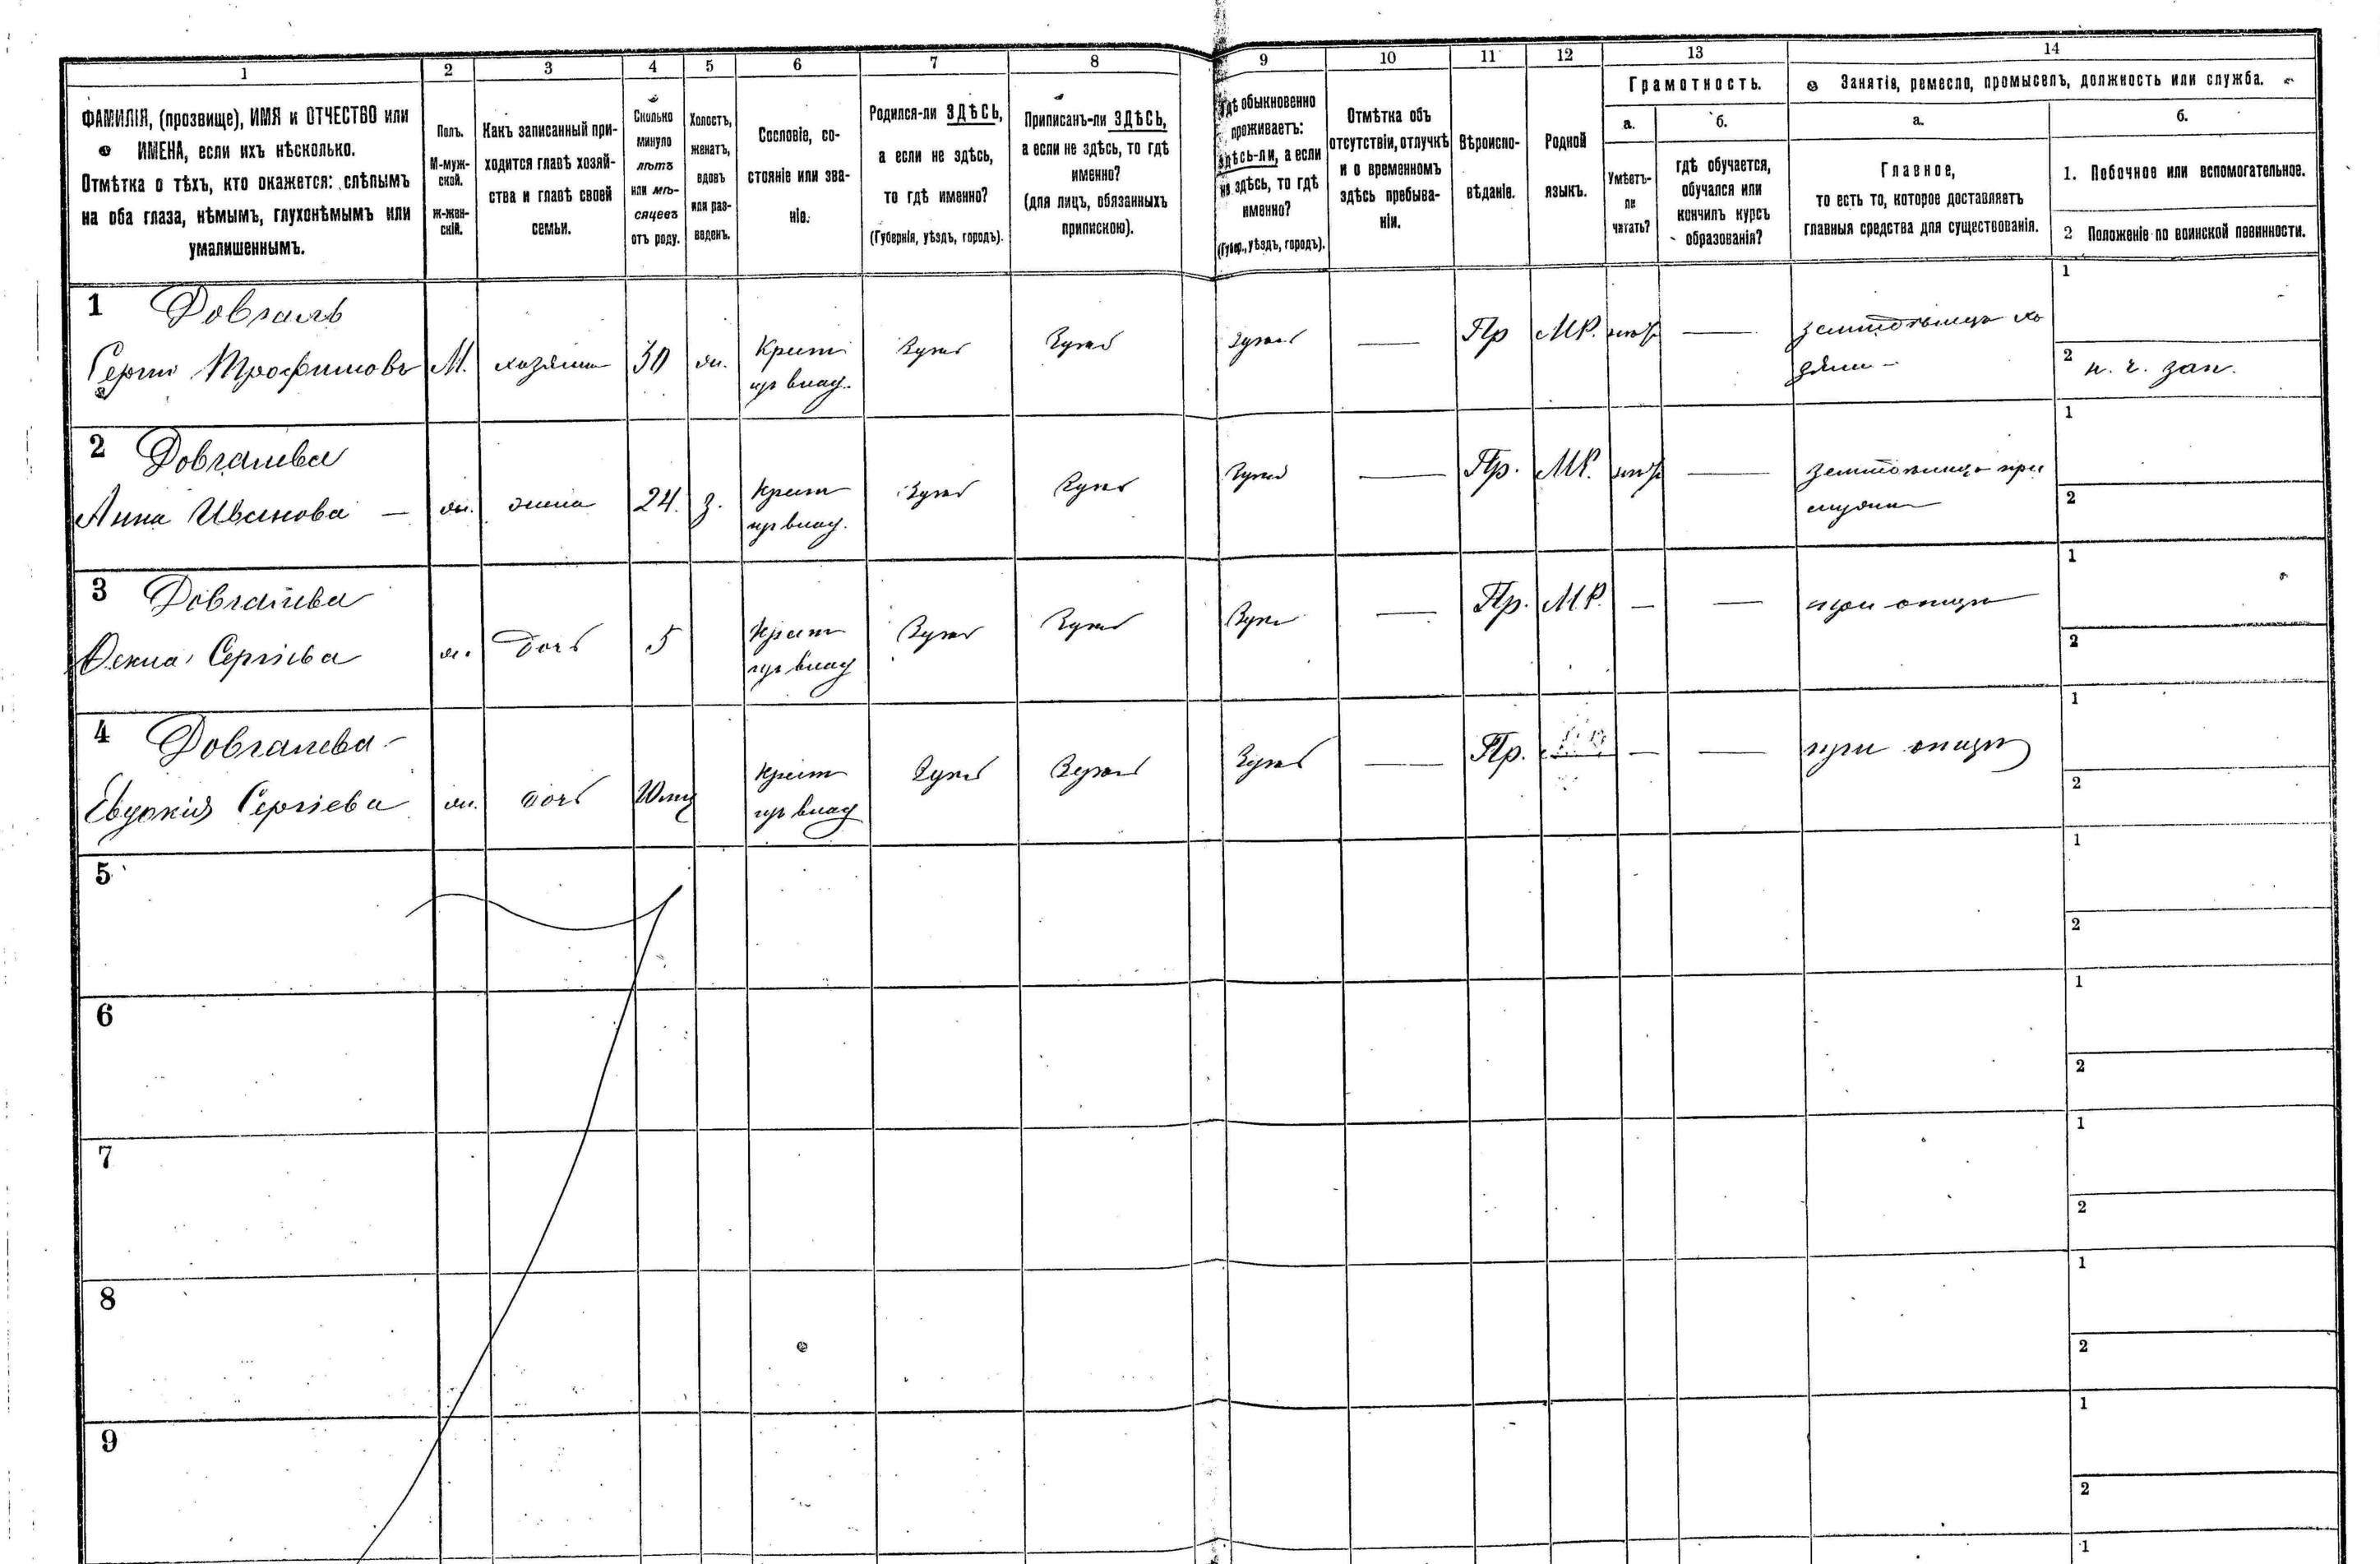 1 2 3 4 5 6 7 8 9 10 11 12 13 14
ФАМИЛІЯ, (прозвище), ИМЯ и ОТЧЕСТВО или
ИМЕНА, если ихъ нѣсколько.
Отмѣтка о тѣхъ, кто окажется: слѣпымъ
на оба глаза, нѣмымъ, глухонѣмымъ или
умалишеннымъ.
Полъ.
М-муж-
ской.
ж-жен-
скій.
Какъ записанный при-
ходится главѣ хозяй-
ства и главѣ своей
семьи.
Сколько
минуло
лѣтъ
или мѣ-
сяцевъ
отъ роду.
Холостъ,
женатъ,
вдовъ
или раз-
веденъ.
Сословіе, со-
стояніе или зва-
ніе.
Родился-ли ЗДѢСЬ,
а если не здѣсь,
то гдѣ именно?
(Губернія, уѣздъ, городъ).
Приписанъ-ли ЗДѢСЬ,
а если не здѣсь, то гдѣ
именно?
(для лицъ, обязанныхъ
припискою).
Гдѣ обыкновенно
проживаетъ:
здѣсь-ли, а если
не здѣсь, то гдѣ
именно?
(Губер., уѣздъ, городъ).
Отмѣтка объ
отсутствіи, отлучкѣ
и о временномъ
здѣсь пребыва-
ніи.
Вѣроиспо-
вѣданіе.
Родной
языкъ.
Грамотность.
а.
Умѣетъ-
ли
читать?
б.
гдѣ обучается,
обучался или
кончилъ курсъ
образованія?
Занятіе, ремесло, промыселъ, должность или служба.
а.
Главное,
то есть то, которое доставляетъ
главныя средства для существованія.
б.
1. Побочное или вспомогательное.
2 Положеніе по воинской повинности.
1 Довгаль
Сергій Трофимовъ М. хозяинъ 30 ж. Крест
изъ влад. — Пр МР. нѣтъ — земледѣлецъ хо
зяинъ
1
2 н. ч. зап.
2 Довгалева
Анна Иванова — ж. жена 24. з. Крест
изъ влад. — Пр. МР. нѣтъ —
1
2
3 Довгалева
Сергіева ж. дочь 5 Крест
изъ влад — Пр. МР. — — при отцѣ
1
2
4 Довгалева
Евдокія Сергіева ж. дочь Крест
изъ влад — Пр. — — при отцѣ
1
2
5
1
2
6
1
2
7
1
2
8
1
2
9
1
2
1